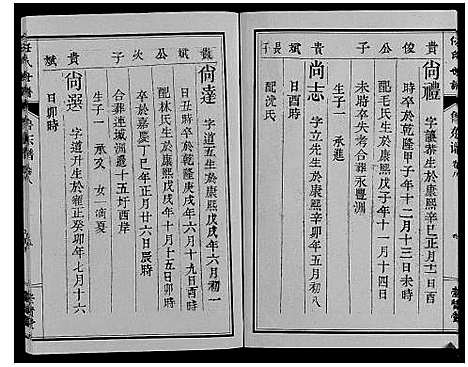 貴俊公子
尚禮 字讓恭生於康熙辛巳正月十一日酉
時卒於乾隆甲子年十二月十三日未時
配毛氏生於康熙戊子年十一月十四日
未時卒失考合葬永豐淵
生子一 承進
貴斌長子
尚志 字立先生於康熙辛卯年五月初八
日酉時
配沈氏
貴斌公次子
尚達 字道五生於康熙戊戌年六月初一
日丑時卒於乾隆庚戌年六月十九日酉時
配林氏生於康熙戊戌年十月十五日卯時
卒於嘉慶丁巳年正月廿六日辰時
合葬連城洲邊十五圩酉岸
生子一 承玖 女一適夏
貴斌
尚選 字道升生於雍正癸卯年七月十六
日卯時